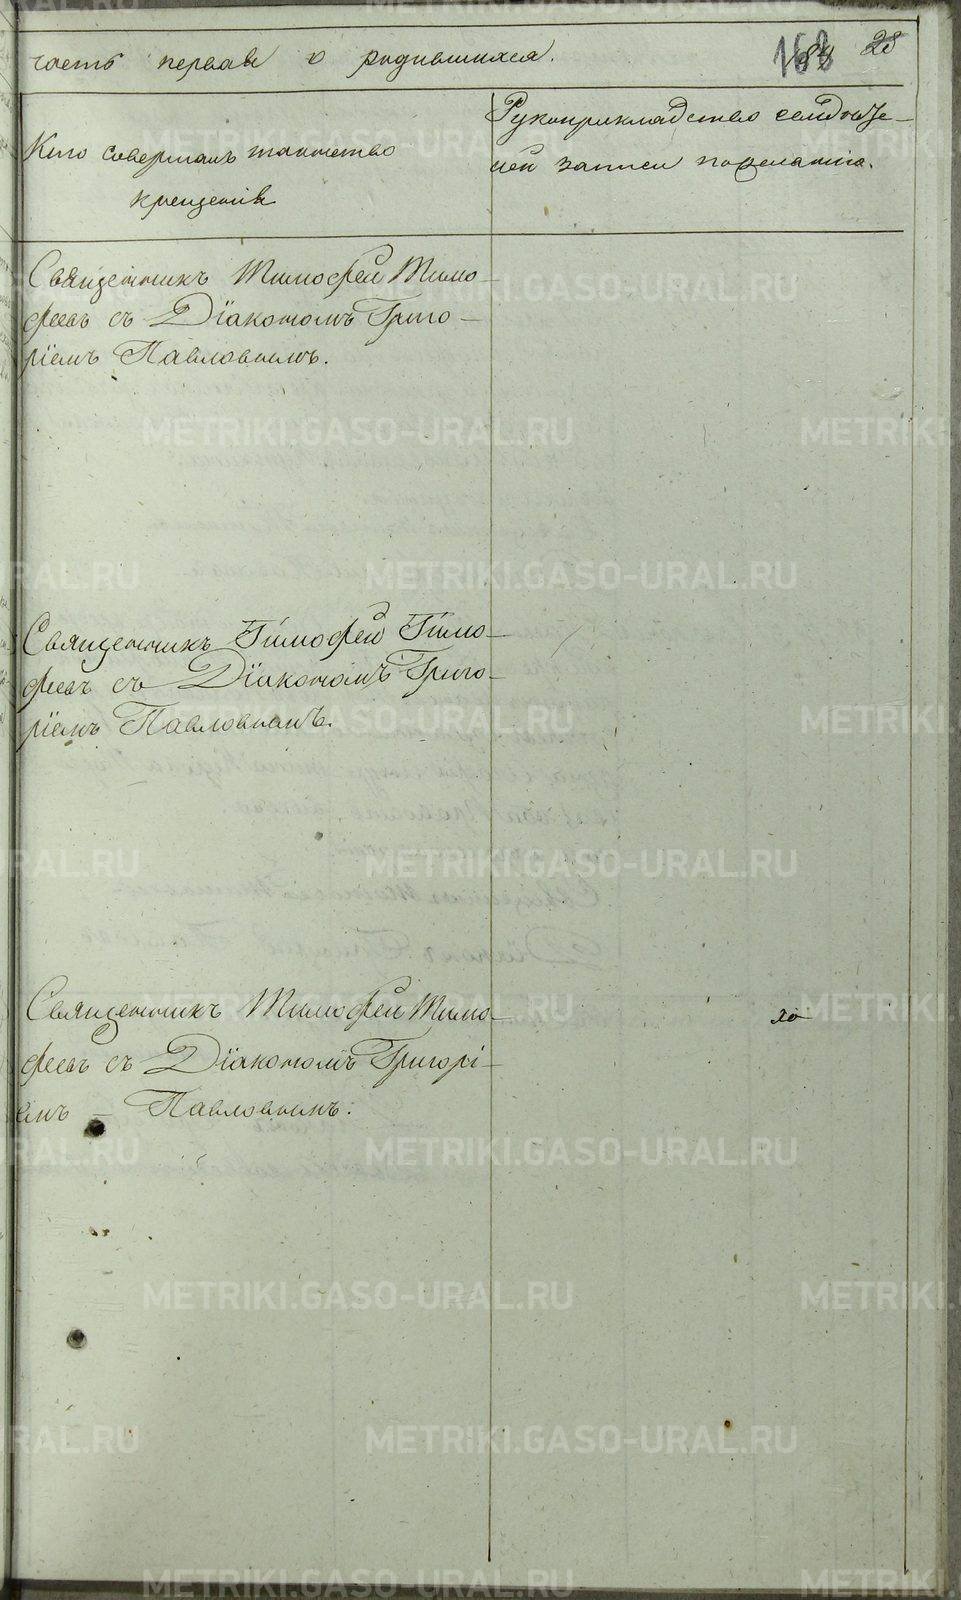 часть первая о родившихся. 168 84 28
Кто совершалъ таинство
крещенія
Рукоприкладство свидѣте-
лей записи по желанію.
Священникъ Тимофей Тимо-
феевъ съ Діакономъ Григо-
ріемъ Павловымъ.
Священникъ Тимофей Тимо-
феевъ съ Діакономъ Григо-
ріемъ Павловымъ.
Священникъ Тимофей Тимо-
феевъ съ Діакономъ Григорі-
емъ - Павловымъ.
METRIKI.GASO-URAL.RU